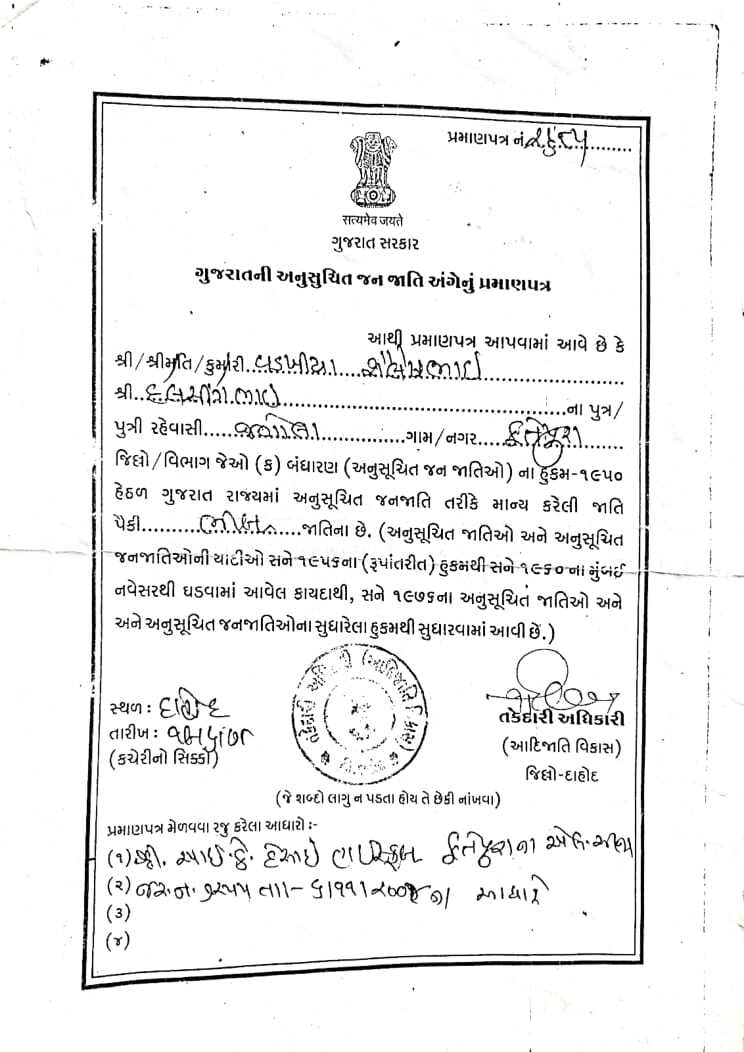 પ્રમાણપત્ર નં
सत्यमेव जयते
ગુજરાત સરકાર
ગુજરાતની અનુસુચિત જન જાતિ અંગેનું પ્રમાણપત્ર
આથી પ્રમાણપત્ર આપવામાં આવે છે કે
શ્રી/શ્રીમતિ/કુમારી..
શ્રી..દલસીંગભાઇ..ના પુત્ર/
પુત્રી રહેવાસી.....ગામ/નગર.....ફતેપુરા
જિલ્લો/વિભાગ જેઓ (ક) બંધારણ (અનુસુચિત જન જાતિઓ) ના હુકમ-૧૯૫૦
હેઠળ ગુજરાત રાજ્યમાં અનુસુચિત જનજાતિ તરીકે માન્ય કરેલી જાતિ
પૈકી.....જાતિના છે. (અનુસુચિત જાતિઓ અને અનુસૂચિત
જનજાતિઓની યાદીઓ સને ૧૯૫૬ના (રૂપાંતરીત) હુકમથી સને ૧૯૬૦ના મુંબઈ
નવેસરથી ઘડવામાં આવેલ કાયદાથી, સને ૧૯૭૬ના અનુસુચિત જાતિઓ અને
અને અનુસુચિત જનજાતિઓના સુધારેલા હુકમથી સુધારવામાં આવી છે.)
તકેદારી અધિકારી (આદિજાતિ વિકાસ)
સ્થળ : દાહોદ
તકેદારી અધિકારી
તારીખ :
(આદિજાતિ વિકાસ)
(કચેરીનો સિક્કો)
જિલ્લો-દાહોદ
(જે શબ્દો લાગુ ન પડતા હોય તે છેકી નાંખવા)
પ્રમાણપત્ર મેળવવા રજુ કરેલા આધારો :-
(૧) શ્રી. આઇ.કે. દેસાઇ હાઇસ્કુલ ફતેપુરાના
(૨) આધારે
(૩)
(૪)